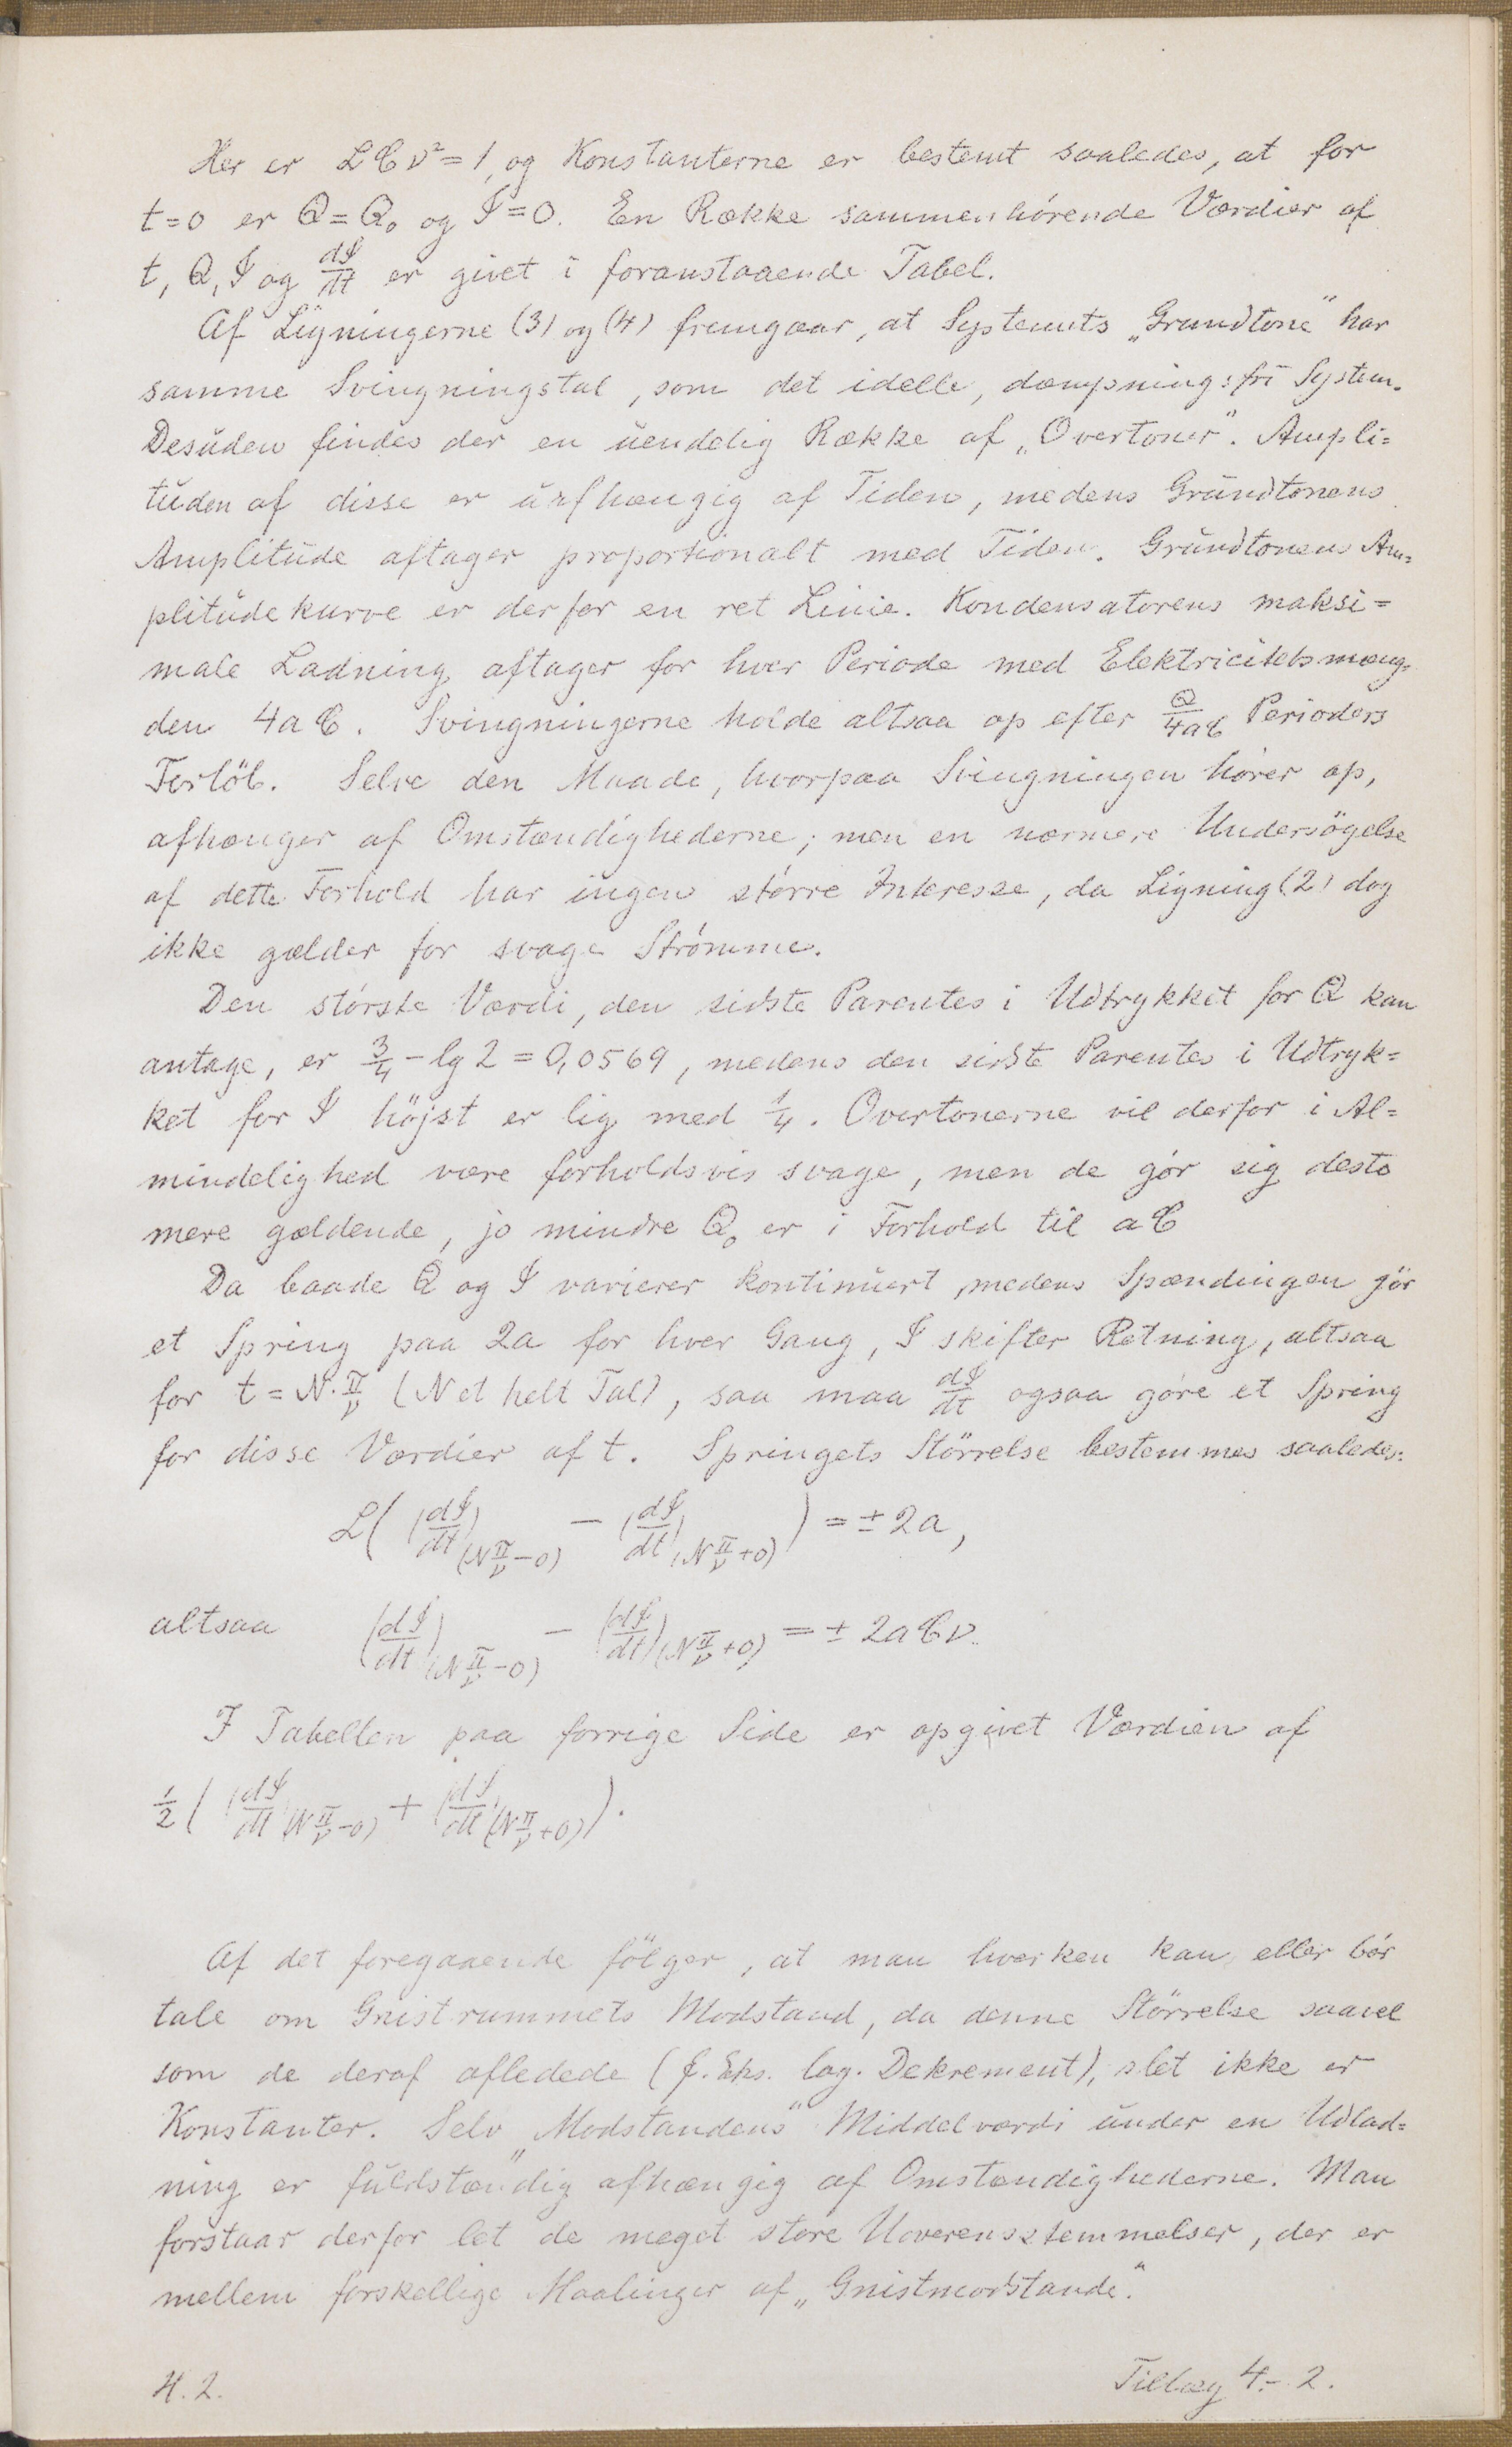 Her er LCν² = 1, og Konstanterne er bestemt saaledes, at for
t=0 er Q = Q₀ og I = 0. En Række sammenhörende Værdier af
t, Q, I og dI/dt er givet i foranstaaende Tabel.
Af Ligningerne (3) og (4) fremgaar, at Systemets „Grundtone" har
samme Svingningstal, som det idelle, dæmpningsfri System.
Desuden findes der en uendelig Række af „Overtoner". Ampli=
tuden af disse er uafhængig af Tiden, medens Grundtonens
Amplitude aftager proportionalt med Tiden. Grundtonens Am=
plitudekurve er derfor en ret Linie. Kondensatorens maksi=
male Ladning aftager for hver Periode med Elektricitetsmæng=
den 4aC. Svingningerne holde altsaa op efter Q/4aC Perioders
Forlöb. Selve den Maade, hvorpaa Svingningen hörer op,
afhænger af Omstændighederne; men en nærmere Undersögelse
af dette Forhold har ingen större Interesse, da Ligning (2) dog
ikke gælder for svage Strömme.
Den störste Værdi, den sidste Parentes i Udtrykket for Q kan
antage, er 3/4 - lg 2 = 0,0569, medens den sidste Parentes i Udtryk=
ket for I höjst er lig med 1/4. Overtonerne vil derfor i Al=
mindelighed være forholdsvis svage, men de gör sig desto
mere gældende, jo mindre Q₀ er i Forhold til aC
Da baade Q og I varierer kontinuert, medens Spændingen gör
et Spring paa 2a for hver Gang, I skifter Retning, altsaa
for t = N·π/ν (N et helt Tal), saa maa dI/dt ogsaa göre et Spring
for disse Værdier af t. Springets Störrelse bestemmes saaledes:
L( (dI/dt)(Nπ/ν-0) - (dI/dt)(Nπ/ν+0) ) = ± 2a,
altsaa (dI/dt)(Nπ/ν-0) - (dI/dt)(Nπ/ν+0) = ± 2aCν.
I Tabellen paa forrige Side er opgivet Værdien af
1/2 ( (dI/dt)(Nπ/ν-0) + (dI/dt)(Nπ/ν+0) ).
Af det foregaaende fölger, at man hverken kan eller bör
tale om Gnistrummets Modstand, da denne Störrelse saavel
som de deraf afledede (f. Eks. log. Dekrement), slet ikke er
Konstanter. Selv „Modstandens" Middelværdi under en Udlad=
ning er fuldstændig afhængig af Omstændighederne. Man
forstaar derfor let de meget store Uoverensstemmelser, der er
mellem forskellige Maalinger af „Gnistmodstande".
H. 2.
Tillæg 4.- 2.